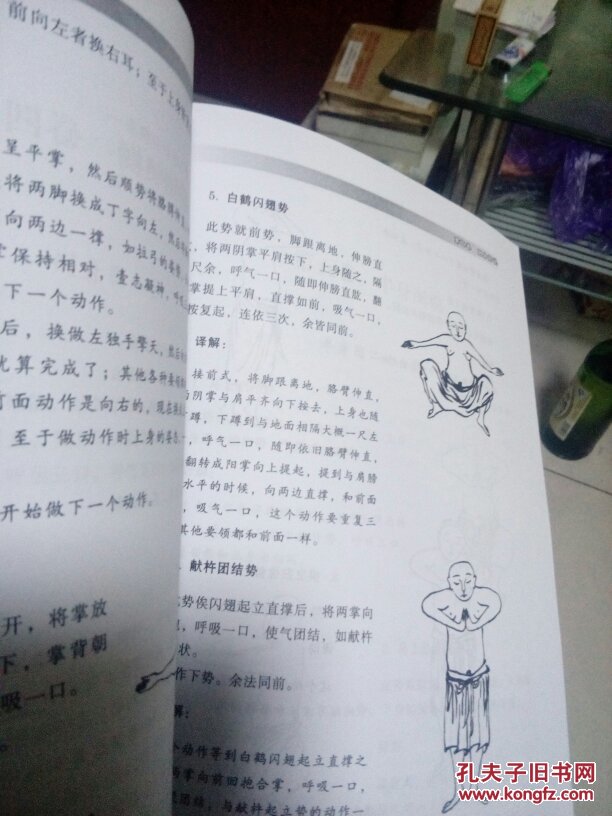 前向左者换右耳；至于上身
呈平掌，然后顺势将胳膊伸直
将两脚换成丁字向左，然后
向两边一撑，如拉弓的姿势
保持相对，壹志凝神，呼
下一个动作。
后，换做左独手擎天，然后
算完成了；其他各种要领
前面动作是向右的，现在
至于做动作时上身的姿态
开始做下一个动作。
开，将掌放
下，掌背朝
吸一口。
5. 白鹤闪翅势
此势就前势，脚跟离地，伸膀直
，将两阴掌平肩按下，上身随之，隔
尺余，呼气一口，随即伸膀直肱，翻
掌提上平肩，直撑如前，吸气一口，
按复起，连依三次，余皆同前。
译解：
接前式，将脚跟离地，胳臂伸直，
阴掌与肩平齐向下按去，上身也随
蹲，下蹲到与地面相隔大概一尺左
，呼气一口，随即依旧胳臂伸直，
翻转成阳掌向上提起，提到与肩膀
水平的时候，向两边直撑，和前面
，吸气一口，这个动作要重复三
其他要领都和前面一样。
献杵团结势
势俟闪翅起立直撑后，将两掌向
，呼吸一口，使气团结，如献杵
状。
作下势。余法同前。
解：
个动作等到白鹤闪翅起立直撑之
两掌向前回抱合掌，呼吸一口，
团结，与献杵起立势的动作一
孔夫子旧书网
www.kongfz.com